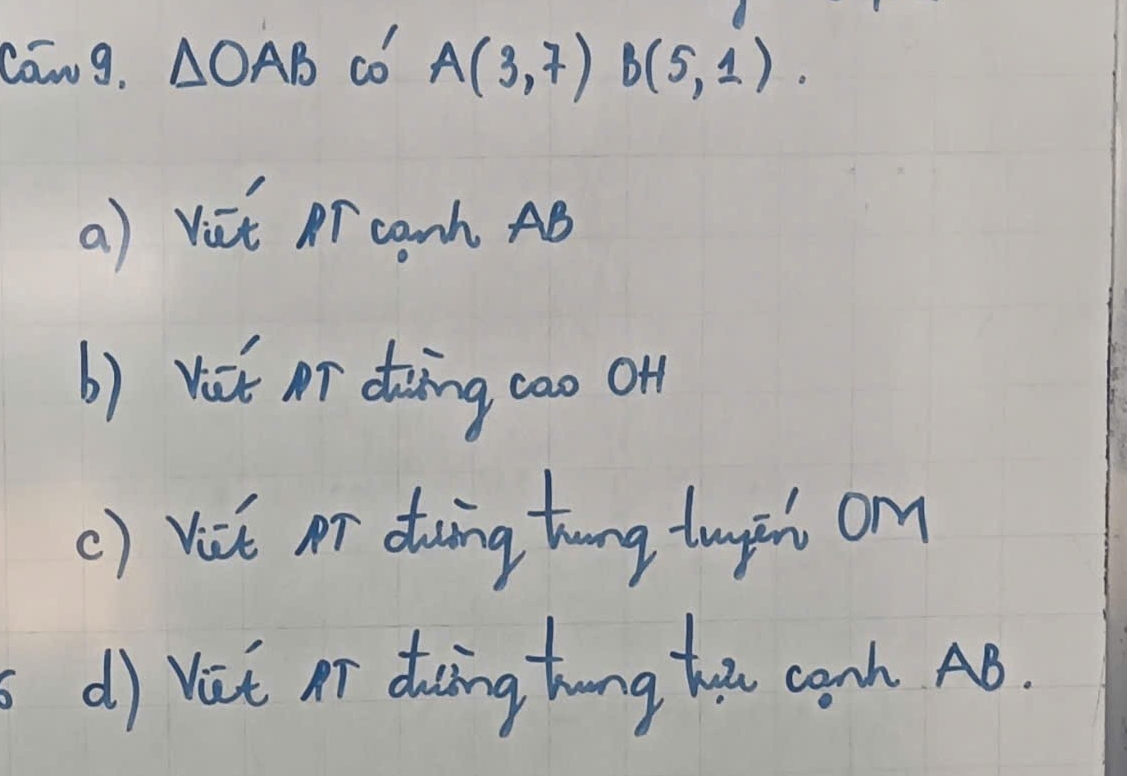 Câu 9. ΔOAB có A(3,7) B(5,1).
a) Viết PT cạnh AB
b) Viết PT đường cao OH
c) Viết PT đường trung tuyến OM
d) Viết PT đường trung trực cạnh AB.